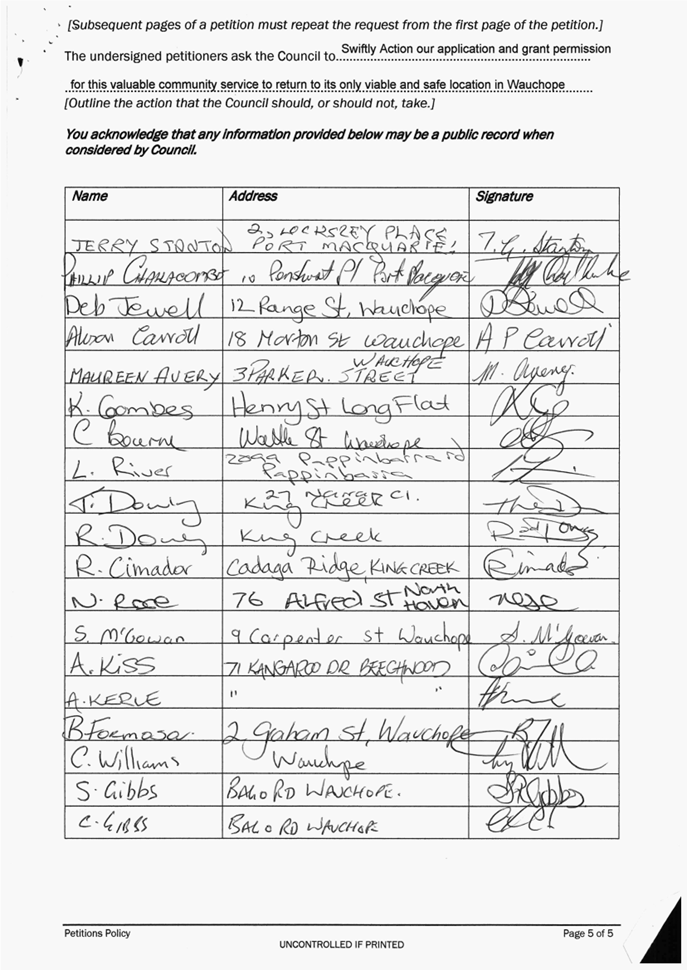 [Subsequent pages of a petition must repeat the request from the first page of the petition.]
The undersigned petitioners ask the Council to Swiftly Action our application and grant permission
for this valuable community service to return to its only viable and safe location in Wauchope
[Outline the action that the Council should, or should not, take.]
You acknowledge that any information provided below may be a public record when
considered by Council.
Name Address Signature
2, LOCKSLEY PLACE
JERRY STANTON PORT MACQUARIE! T. G. Stanton
PHILLIP Pl Port Macquarie
Deb Jewell 12 Range St, Wauchope D Jewell
Alison Carroll 18 Morton St Wauchope A P Carroll
WAUCHOPE
MAUREEN AVERY 3 PARKER. STREET M. Avery.
K. Combes Henry St Long Flat
C Bourne Wattle St Wauchope
2099 Pappinbarra rd
L. River Pappinbarra
27 Cl.
King Creek
R. King Creek
R. Cimador Cadaga Ridge, KING CREEK R Cimador
N. 76 Alfred St North Haven
S. McGowan 9 Carpenter st Wauchope S. McGowan.
A. KISS 71 KANGAROO DR BEECHWOOD
A. KERLE " "
B Formosa. 2 Graham St, Wauchope
C. Williams Wauchope
S. Gibbs BAGO RD WAUCHOPE. S Gibbs
C. GIBBS BAGO RD WAUCHOPE
Petitions Policy Page 5 of 5
UNCONTROLLED IF PRINTED